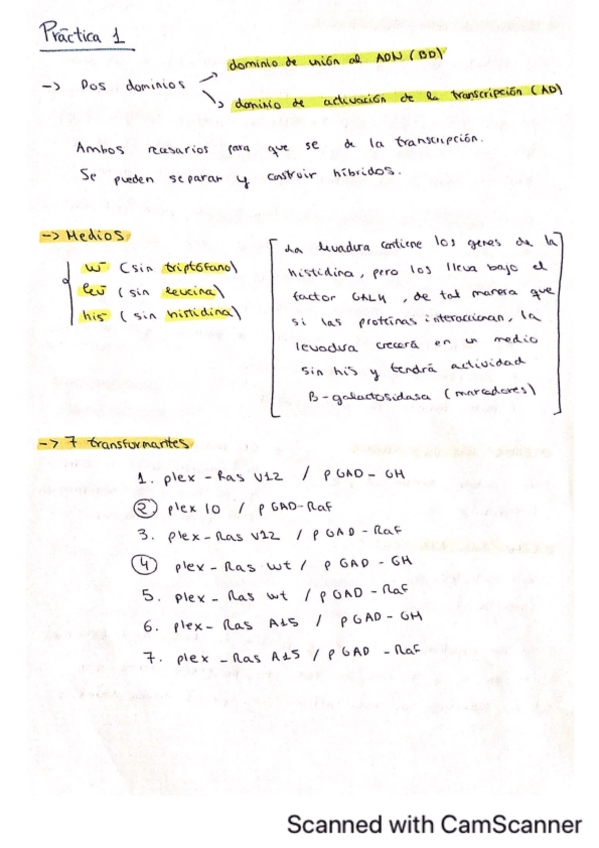 Práctica 1
dominio de unión al ADN (BD)
-> Dos dominios
dominio de activación de la transcripción (AD)
Ambos necesarios para que se de la transcripción.
Se pueden separar y construir híbridos.
-> Medios
w⁻ (sin triptófano)
leu⁻ (sin leucina)
his⁻ (sin histidina)
La levadura contiene los genes de la
histidina, pero los lleva bajo el
factor GAL4, de tal manera que
si las proteínas interaccionan, la
levadura crecerá en un medio
sin his y tendrá actividad
β-galactosidasa (marcadores)
-> 7 transformantes
1. plex - Ras V12 / pGAD - GH
2 plex 10 / pGAD-Raf
3. plex - Ras V12 / pGAD - Raf
4 plex - Ras wt / pGAD - GH
5. plex - Ras wt / pGAD - Raf
6. plex - Ras A15 / pGAD - GH
7. plex - Ras A15 / pGAD - Raf
Scanned with CamScanner